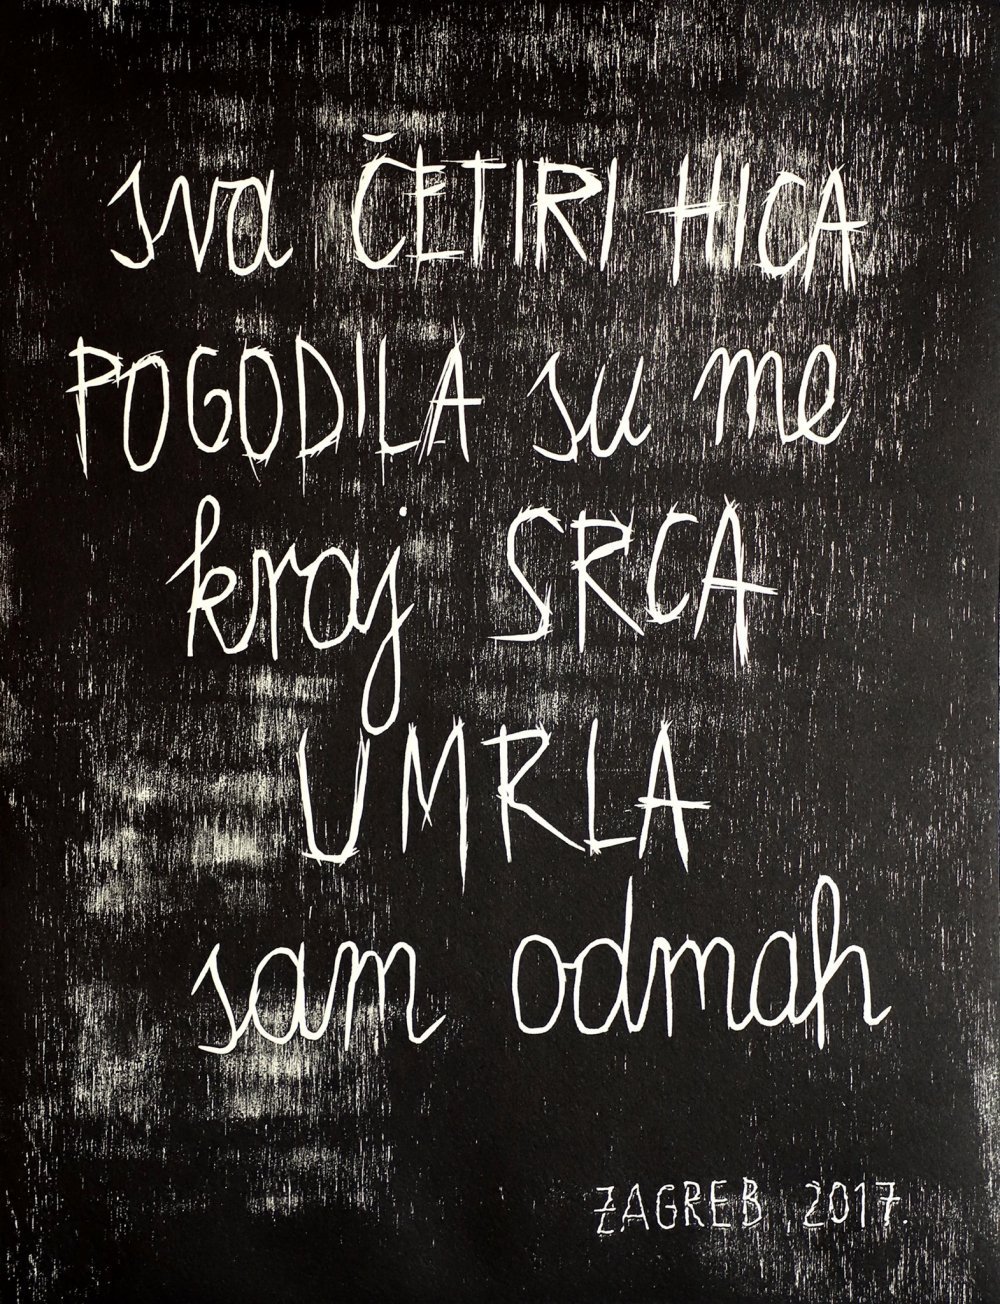 sva ČETIRI HICA
POGODILA su me
kraj SRCA
UMRLA
sam odmah
ZAGREB, 2017.